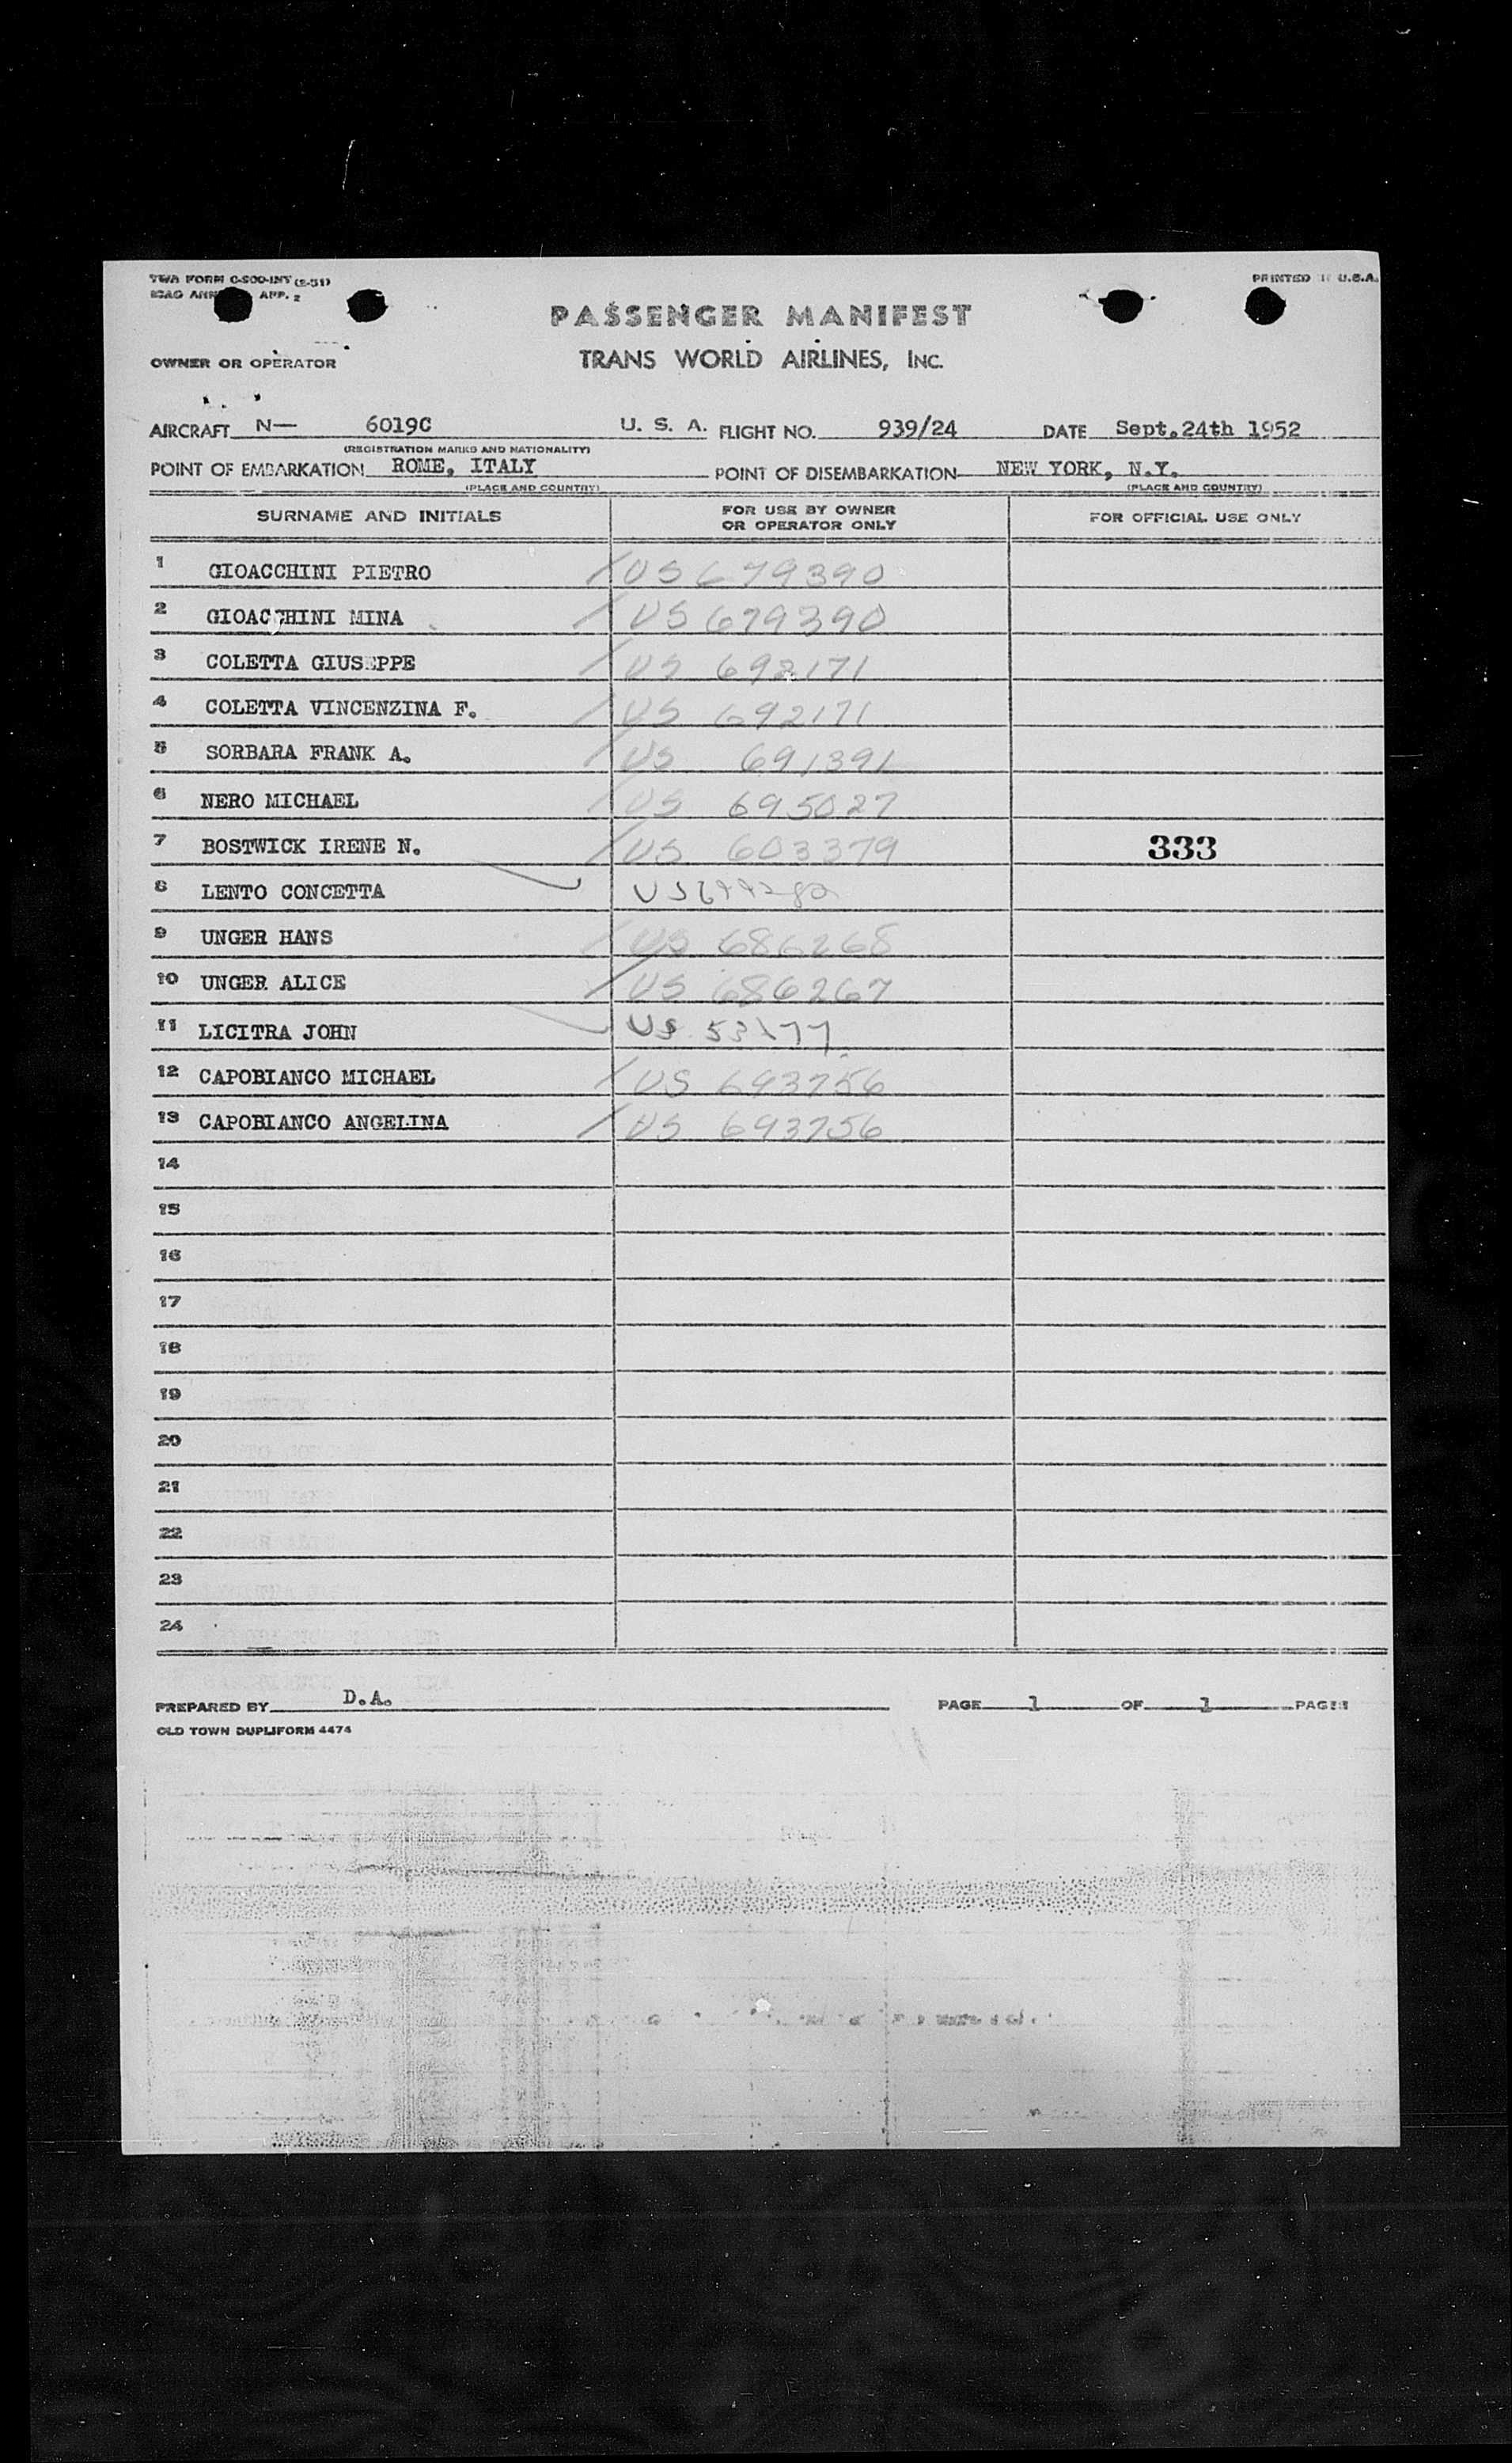 TWA FORM C-800-INT (2-51)
PRINTED IN U.S.A.
ICAO APP. 2
PASSENGER MANIFEST
OWNER OR OPERATOR
TRANS WORLD AIRLINES, INC.
AIRCRAFT N— 6019C U. S. A. FLIGHT NO. 939/24 DATE Sept.24th 1952
(REGISTRATION MARKS AND NATIONALITY)
POINT OF EMBARKATION ROME, ITALY POINT OF DISEMBARKATION NEW YORK, N.Y.
(PLACE AND COUNTRY) (PLACE AND COUNTRY)
SURNAME AND INITIALS FOR USE BY OWNER OR OPERATOR ONLY FOR OFFICIAL USE ONLY
1 GIOACCHINI PIETRO US 679390
2 GIOACCHINI MINA US 679390
3 COLETTA GIUSEPPE US 692171
4 COLETTA VINCENZINA F. US 692171
5 SORBARA FRANK A. US 691391
6 NERO MICHAEL US 695027
7 BOSTWICK IRENE N. US 603379 333
8 LENTO CONCETTA US
9 UNGER HANS US 686268
10 UNGER ALICE US 686267
11 LICITRA JOHN US
12 CAPOBIANCO MICHAEL US 693756
13 CAPOBIANCO ANGELINA US 693756
14
15
16
17
18
19
20
21
22
23
24
PREPARED BY D.A. PAGE 1 OF 1 PAGES
OLD TOWN DUPLIFORM 4474